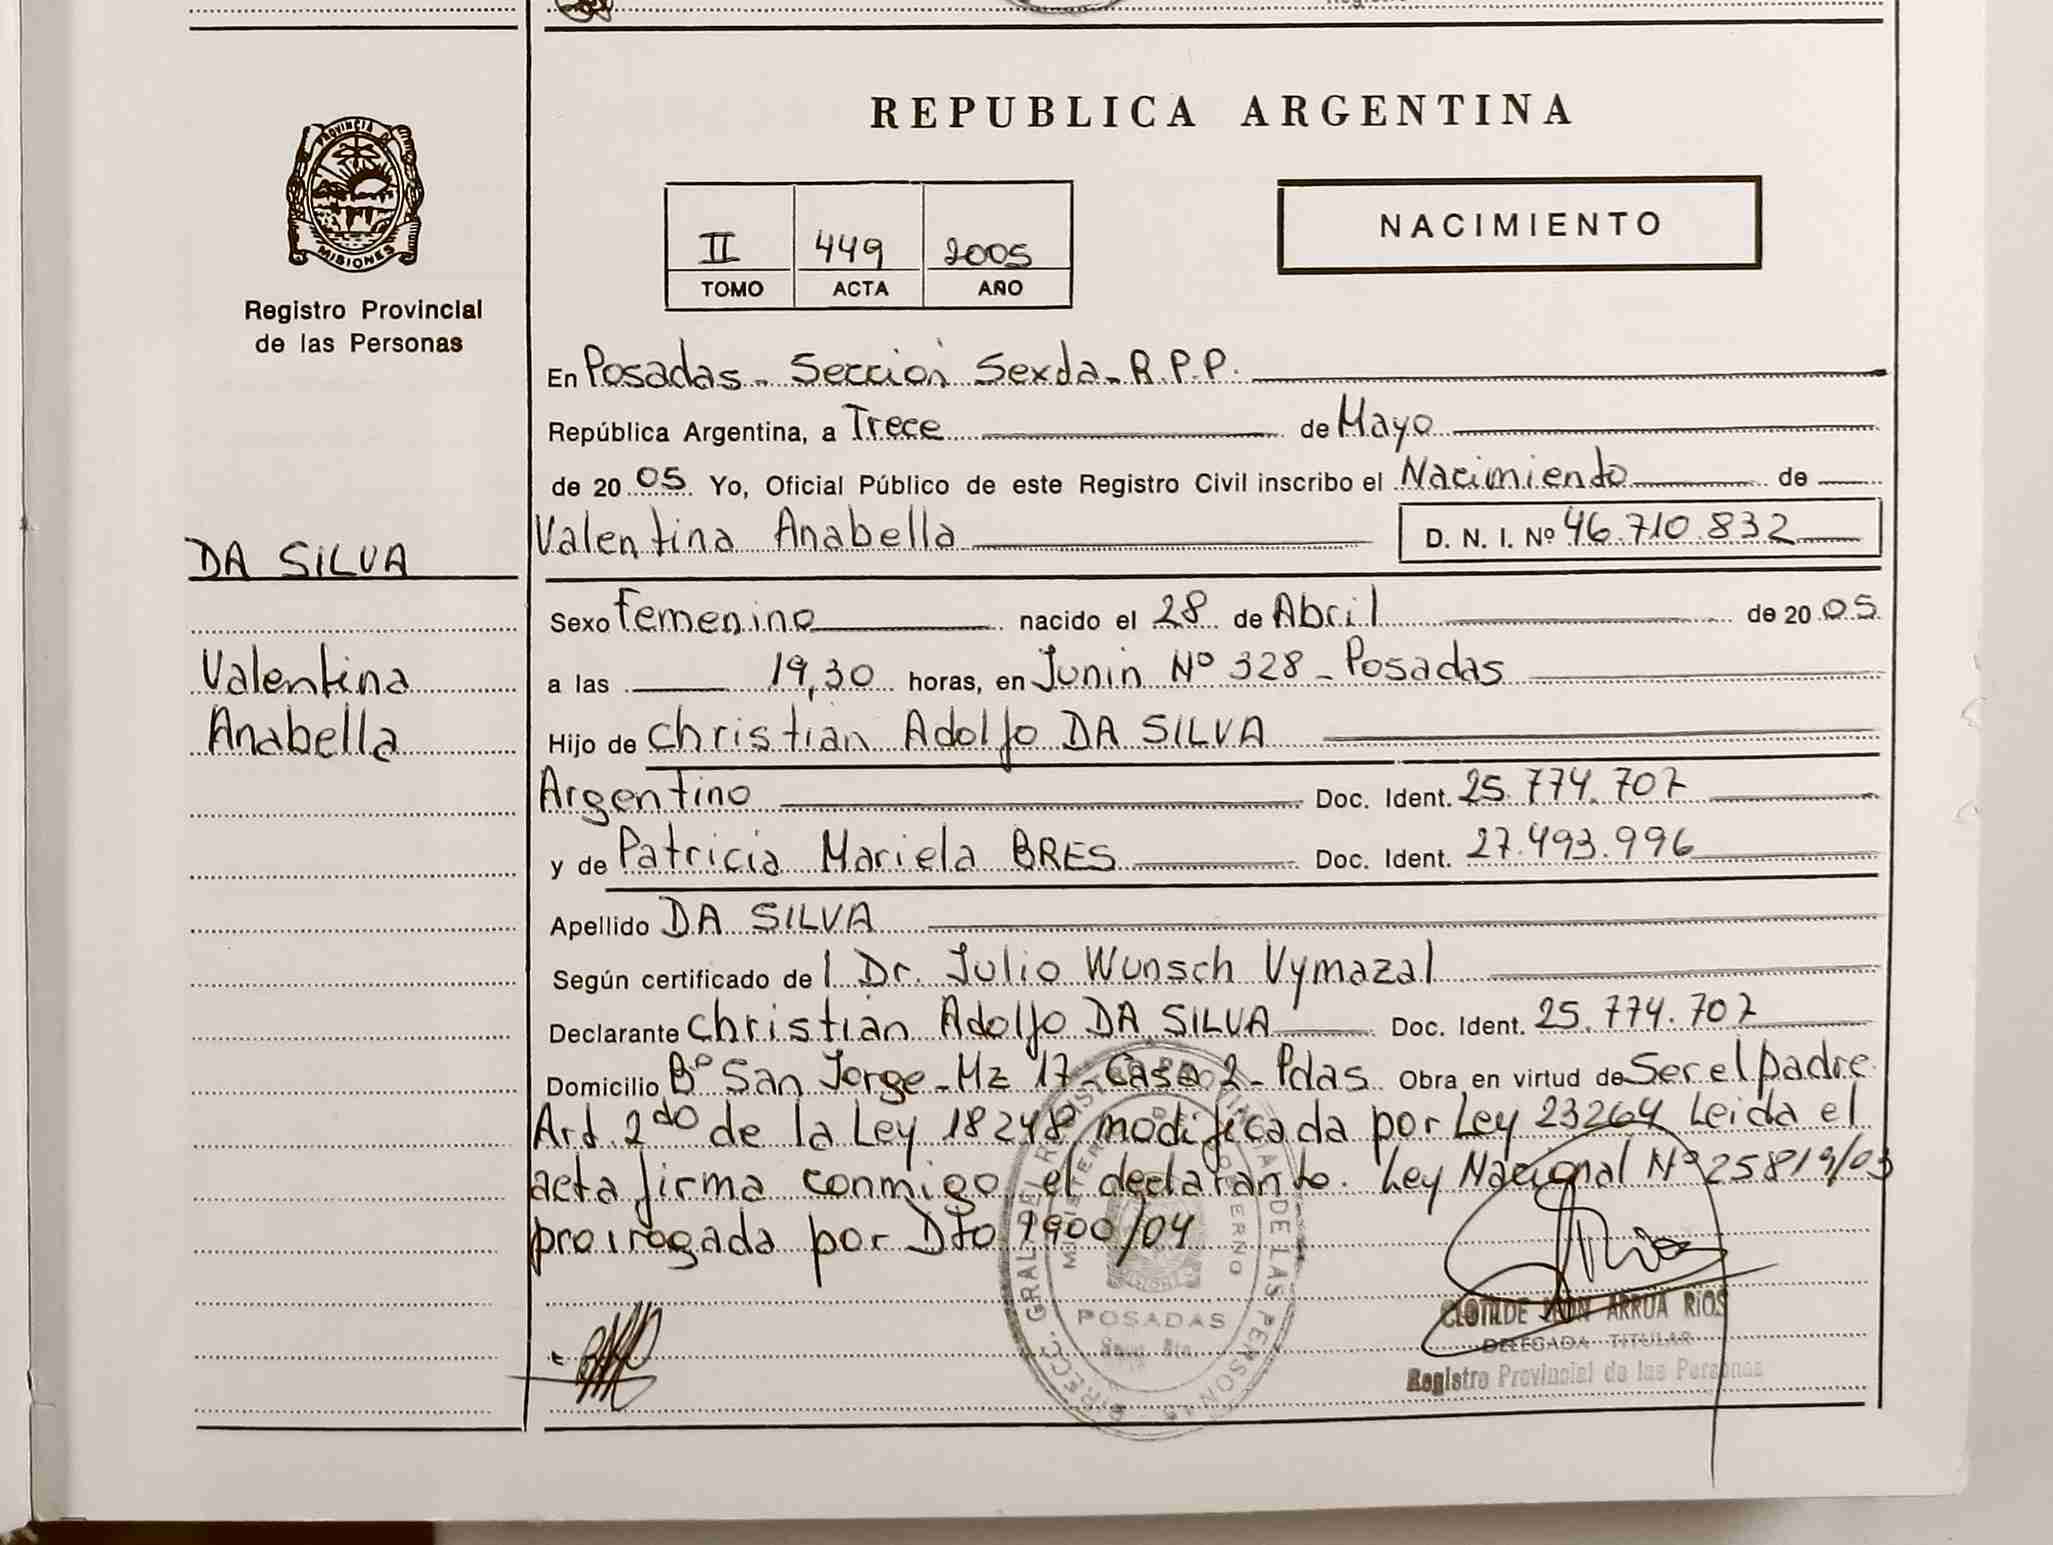 REPUBLICA ARGENTINA
PROVINCIA DE
MISIONES
Registro Provincial
de las Personas
II 449 2005
TOMO ACTA AÑO
NACIMIENTO
En Posadas - Sección Sexta - R.P.P.
República Argentina, a Trece de Mayo
de 20 05 Yo, Oficial Público de este Registro Civil inscribo el Nacimiento de
DA SILVA
Valentina Anabella D. N. I. Nº 46.710.832
Sexo Femenino nacido el 28 de Abril de 20 05
Valentina
Anabella
a las 19,30 horas, en Junin Nº 328 - Posadas
Hijo de Christian Adolfo DA SILVA
Argentino Doc. Ident. 25.774.707
y de Patricia Mariela BRES Doc. Ident. 27.493.996
Apellido DA SILVA
Según certificado de l Dr. Julio Wunsch Vymazal
Declarante Christian Adolfo DA SILVA Doc. Ident. 25.774.707
Domicilio Bº San Jorge - Mz 17 - Casa 2 - Pdas Obra en virtud de Ser el padre
Art. 2do de la Ley 18248 modificada por Ley 23264 Leida el
acta firma conmigo el declarante. Ley Nacional Nº 25819/03
prorrogada por Dto 1900/04
DIRECC. GRAL. DEL REGISTRO PROVINCIAL DE LAS PERSONAS
MINISTERIO DE GOBIERNO
POSADAS
CLOTILDE ARRUA RIOS
DELEGADA TITULAR
Registro Provincial de las Personas